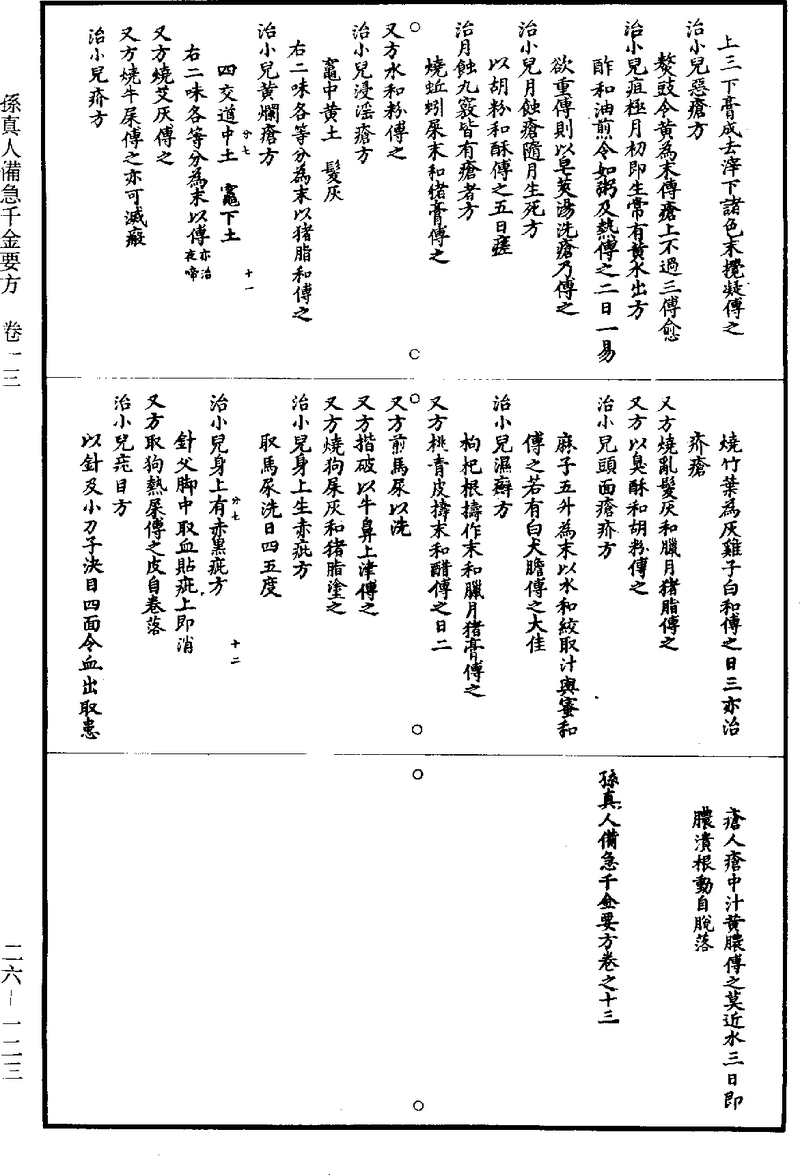 上三下膏成去滓下諸色末攪凝傅之
治小兒惡瘡方
熬豉令黃為末傅瘡上不過三傅愈
治小兒疽極月初即生常有黃水出方
酢和油煎令如粥及熱傅之二日一易
欲重傅則以皂莢湯洗瘡乃傅之
治小兒月蝕瘡隨月生死方
以胡粉和酥傅之五日瘥
治月蝕九竅皆有瘡者方
燒蚯蚓屎末和猪膏傅之
又方水和粉傅之
治小兒浸淫瘡方
竈中黃土　髮灰
右二味各等分為末以猪脂和傅之
治小兒黃爛瘡方
分七　十一
四交道中土　竈下土
右二味各等分為末以傅亦治夜啼
又方燒艾灰傅之
又方燒牛屎傅之亦可滅瘢
治小兒疥方
燒竹葉為灰雞子白和傅之日三亦治
疥瘡
又方燒亂髮灰和臘月猪脂傅之
又方以臭酥和胡粉傅之
治小兒頭面瘡疥方
麻子五升為末以水和絞取汁與蜜和
傅之若有白犬膽傅之大佳
治小兒濕癬方
枸杞根擣作末和臘月猪膏傅之
又方桃青皮擣末和醋傅之日二
又方煎馬尿以洗
又方揩破以牛鼻上津傅之
又方燒狗屎灰和猪脂塗之
治小兒身上生赤疵方
取馬尿洗日四五度
治小兒身上有赤黑疵方
分七　十二
針父脚中取血貼疵上即消
又方取狗熱屎傅之皮自卷落
治小兒疣目方
以針及小刀子決目四面令血出取患
瘡人瘡中汁黃膿傅之莫近水三日即
膿潰根動自脫落
孫真人備急千金要方卷之十三
孫真人備急千金要方　卷一三
二六－一二三